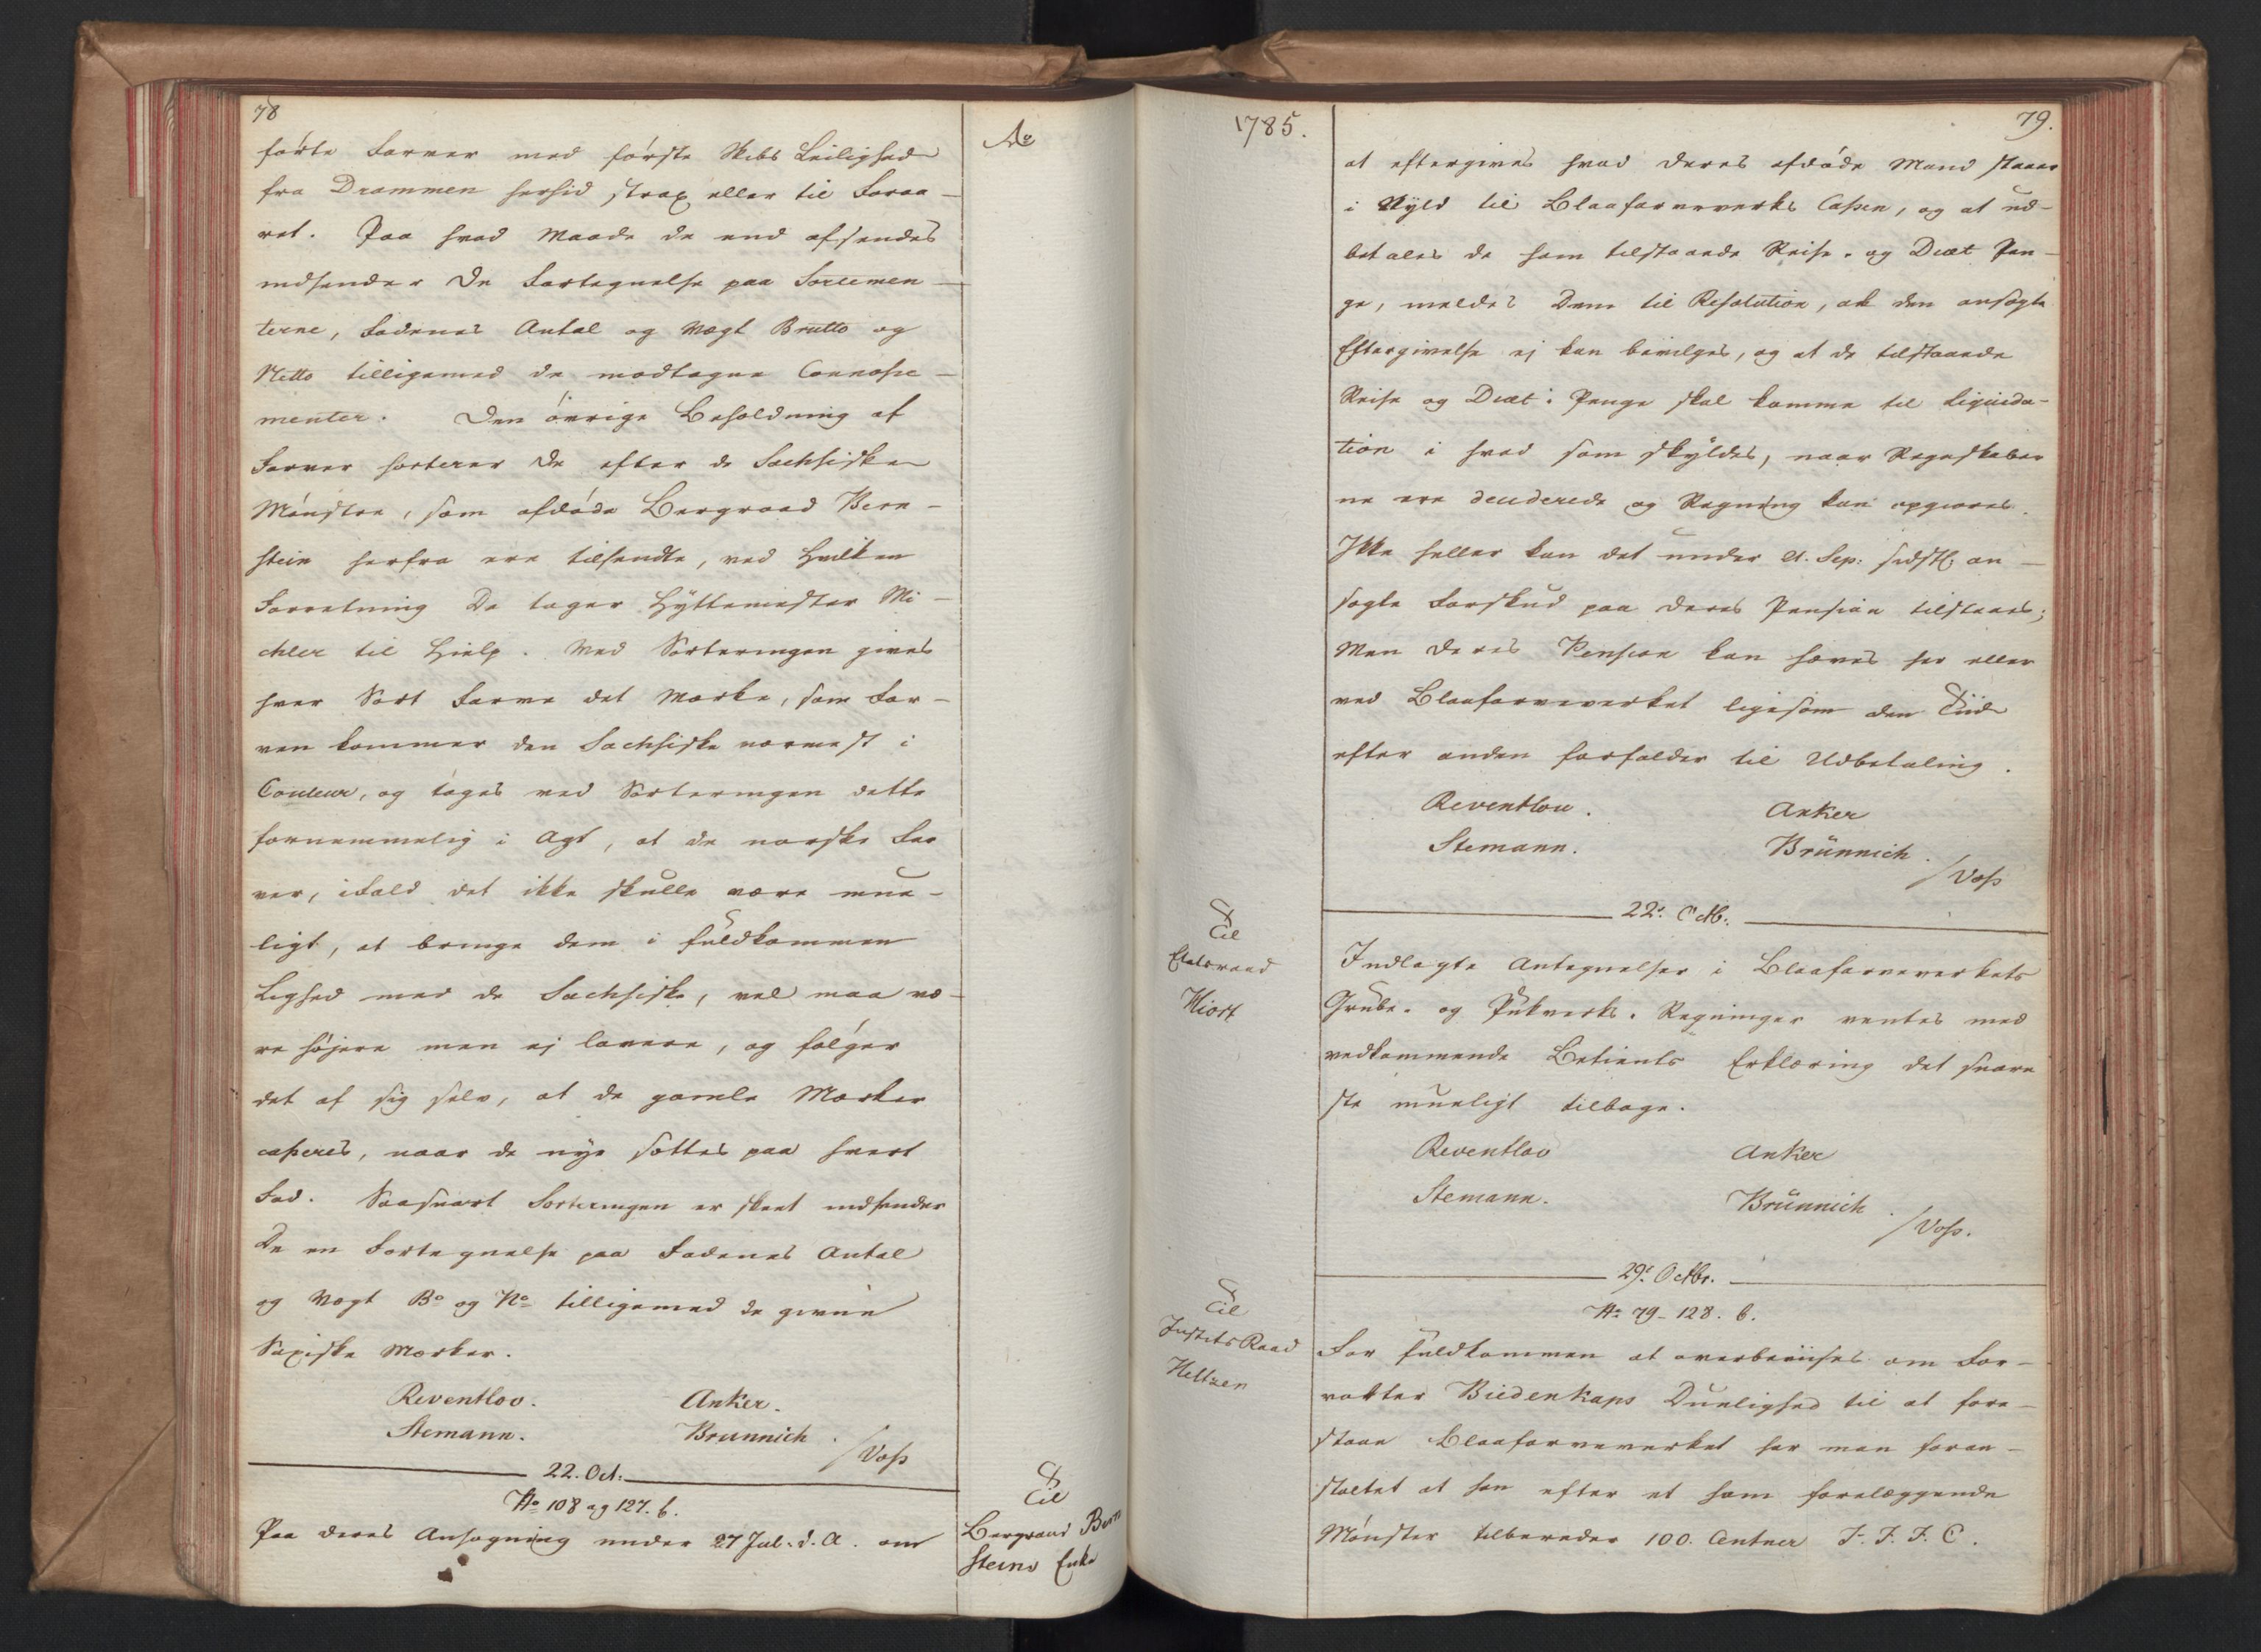 78
førte Farver med første Skibs Leilighed
fra Drammen herhid strax eller til Foraa-
ret. Paa hvad Maade de end afsendes
indsender De Fortegnelse paa Sortemen-
terne, Fadenes Antal og Vægt Brutto og
Netto tilligemed de modtagne Connosse-
menter. Den øvrige Beholdning af
Farver sorterer De efter de Sachsiske
Mønstre, som afdøde Bergraad Bern-
stein herfra ere tilsendte, ved hvilken
Forretning De tager Hyttemester Mi-
chler til Hielp. Med Sorteringen gives
hver Sort Farve det Mærke, som Far-
ven kommer den Sachsiske nærmest i
Couleur, og tages ved Sorteringen dette
fornemmelig i Agt, at de norske Far
ver, ifald det ikke skulle være mue-
ligt, at bringe dem i fuldkommen
Lighed med de Sachsiske, vel maa væ-
re høiere men ej lavere, og følger
det af sig selv, at de gamle Mærker
casseres, naar de nye sættes paa hvert
Fad. Saasnart Sorteringen er skeet indsender
De en Fortegnelse paa Fadenes Antal
og Vægt Bo og No tilligemed de givne
Saxiske Mærker.
Reventlov. Anker.
Stemann. Brunnich.
/Voss
22. Oct:
No 108 og 127. b.
Paa deres Ansøgning under 27 Jul. d. A. om
Ao
Til
Bergraad Bern
steins Enke
1785.
79.
at eftergives hvad deres afdøde Mand staaer
i Skyld til Blaafarveverks Cassen, og at ud-
betales de ham tilstaaede Reise- og Diæt Pen-
ge, meldes Dem til Resolution, at den ansøgte
Eftergivelse ej kan bevilges, og at de tilstaaede
Reise og Diæt: Penge skal komme til Liqvida-
tion i hvad som skyldes, naar Regnskaber
ne ere deciderede og Regning kan opgiøres.
Ikke heller kan det under 21. Sep: sidstl: an-
søgte Forskud paa deres Pension tilstaaes;
Men deres Pension kan hæves her eller
ved Blaafarveverket ligesom den Tiid
efter anden forfalder til Udbetaling.
Reventlou. Anker
Stemann. Brünnich.
/Voss
22de Octb:
Til
Etatsraad
Hiort
Indlagte Antegnelser i Blaafarveverkets
Grube- og Pukverks- Regninger ventes med
vedkommende Betients Erklæring det snare
ste mueligt tilbage.
Reventlov Anker
Stemann. Brünnich.
/Voss.
29de Octbr.
No 79-128. b.
Til
JustitsRaad
Heltzen
For fuldkommen at overbeviises om For-
valter Biedenkaps Duelighed til at fore-
staae Blaafarveverket har man foran-
staltet at han efter et ham forelæggende
Mønster tilbereder 100. Centner F. F. F. C.